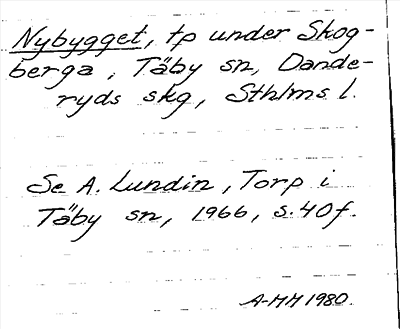 Nybygget, tp under Skog-
berga, Täby sn, Dande-
ryds skg, Sthlms l.
Se A. Lundin, Torp i
Täby sn, 1966, s. 40f.
A-MM 1980.